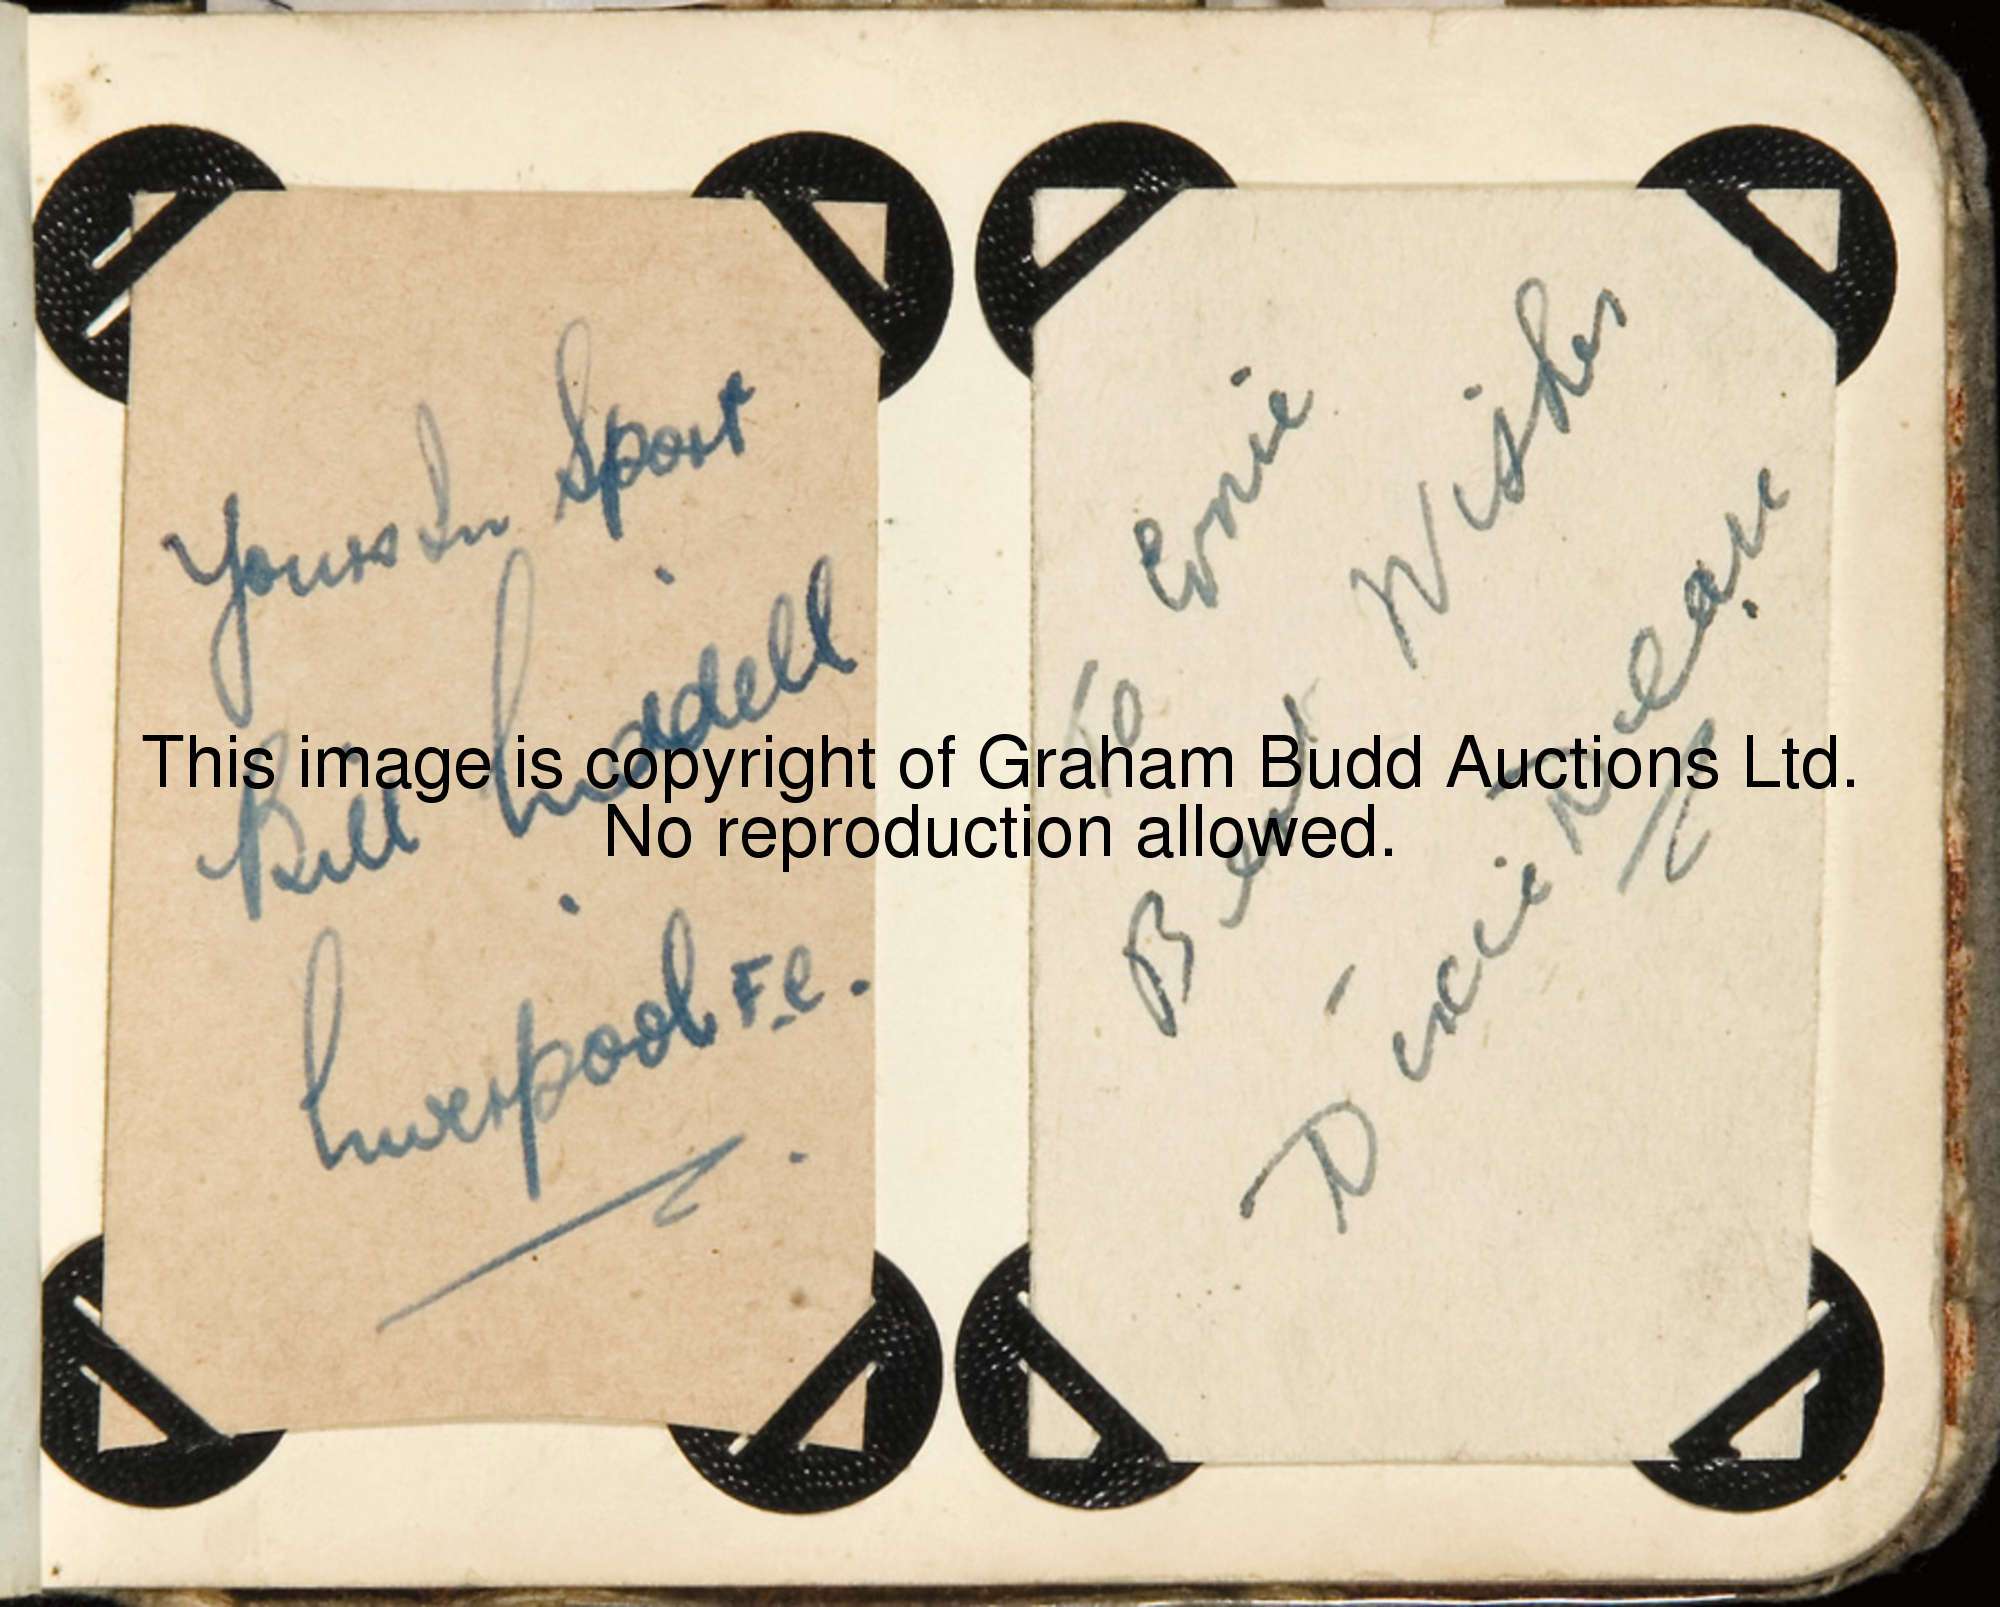 Yours In Sport
Bill Liddell
Liverpool F.C.
To Ernie
Best Wishes
Dixie Dean
This image is copyright of Graham Budd Auctions Ltd.
No reproduction allowed.